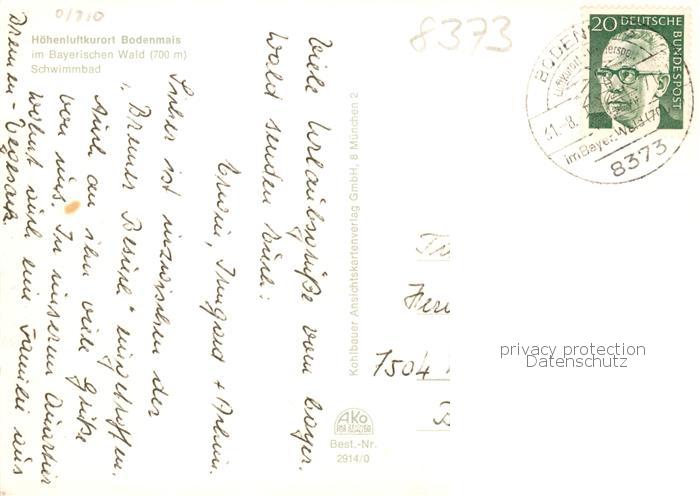 0/910
8373
Höhenluftkurort Bodenmais
im Bayerischen Wald (700 m)
Schwimmbad
Viele Urlaubsgrüße vom bayer.
Wald senden Euch:
Erwin, Irmgard +
Sicher ist inzwischen der
"Bremer Besuch" eingetroffen.
Auch an ihn viele Grüße
von uns. In unserem Quartier
wohnt auch eine Familie aus
Bremen-Vegesack.
Kohlbauer Ansichtskartenverlag GmbH, 8 München 2
AKo
Best.-Nr.
2914/0
20 DEUTSCHE
BUNDESPOST
BODENMAIS
-8.
im Bayer. Wald (700
8373
Herrn
7504
privacy protection
Datenschutz